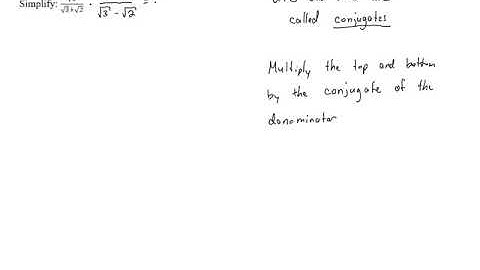 Simplify: √3+√2 · √3 - √2 = .
called conjugates
Multiply the top and bottom
by the conjugate of the
denominator